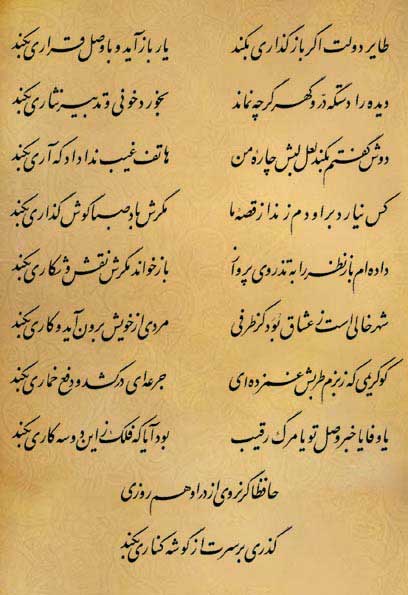 طایر دولت اگر باز گذاری بکند یار باز آید و با وصل قراری بکند
دیده را دستگه در و گهر گرچه نماند بخورد خونی و تدبیر نثاری بکند
دوش گفتم بکند لعل لبش چاره من هاتف غیب ندا داد که آری بکند
کس نیارد بر او دم زند از قصه ما مگرش باد صبا گوش گذاری بکند
داده ام باز نظر را به تذروی پرواز باز خواند مگرش نقش و شکاری بکند
شهر خالی است ز عشاق بود کز طرفی مردی از خویش برون آید و کاری بکند
کو کریمی که ز بزم طربش غمزده ای جرعه ای درکشد و دفع خماری بکند
یا وفا یا خبر وصل تو یا مرگ رقیب بود آیا که فلک زین دو سه کاری بکند
حافظا گر نروی از در او هم روزی
گذری بر سرت از گوشه کناری بکند